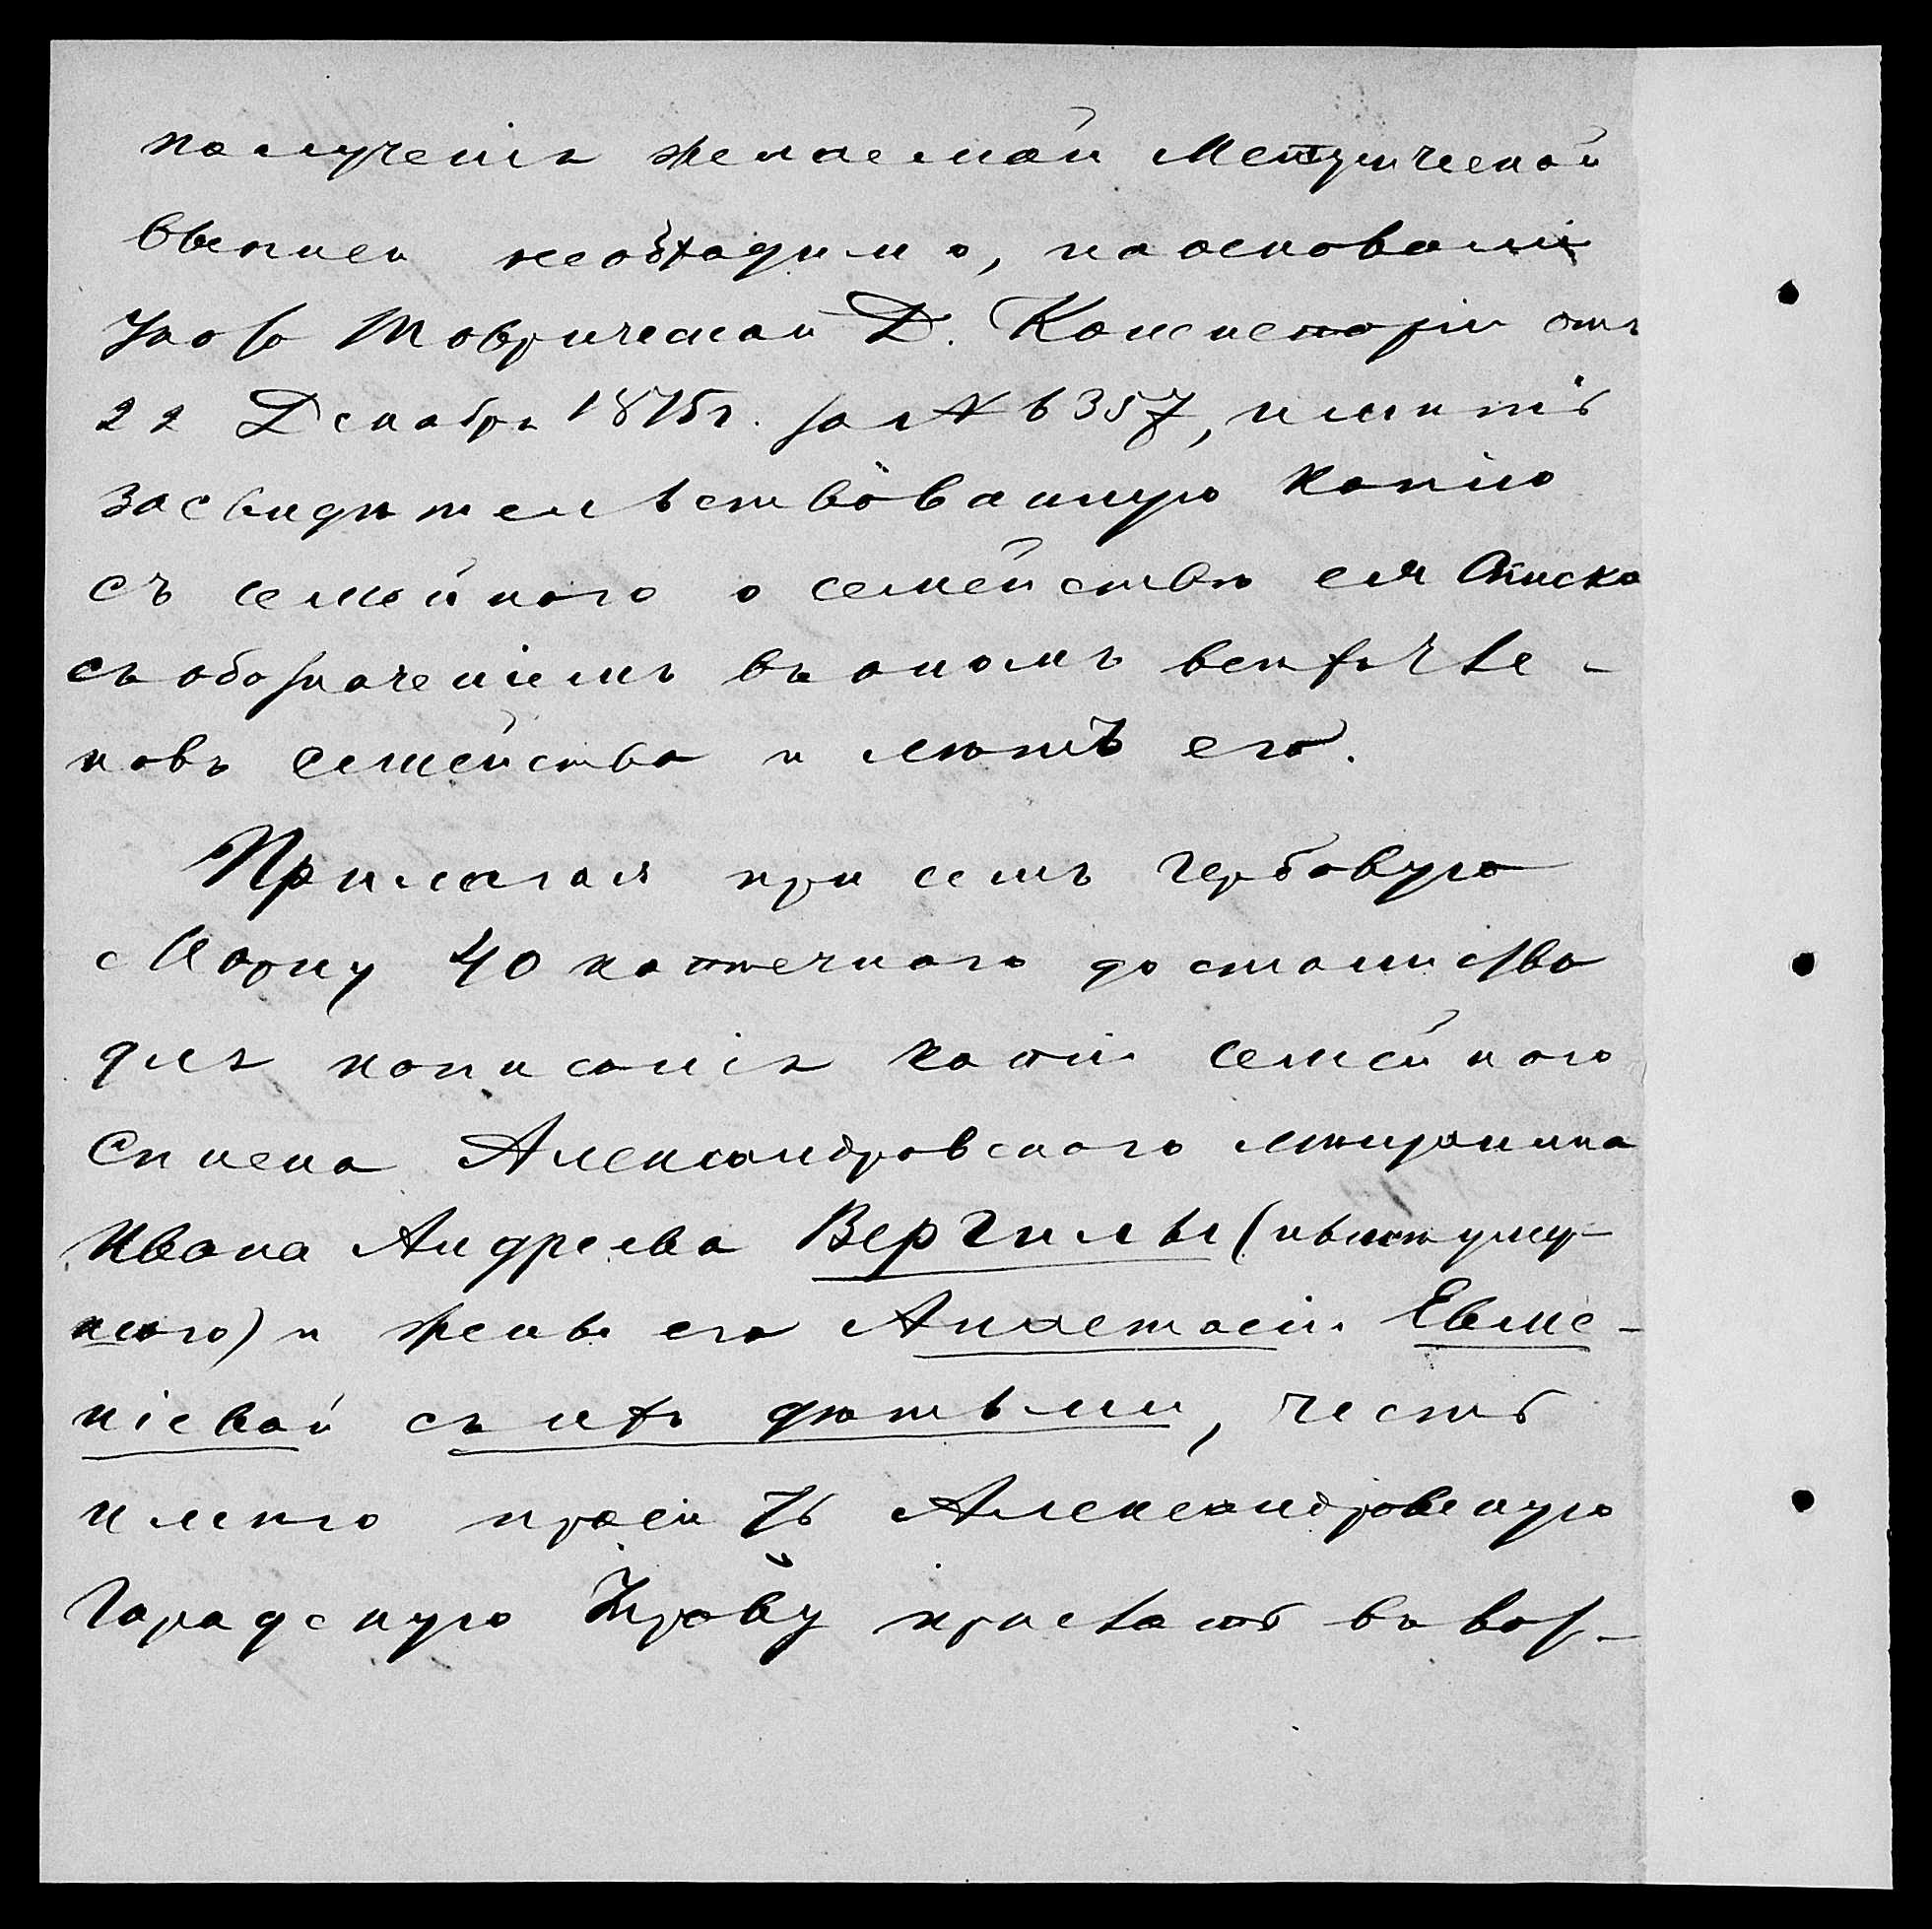 полученія желаемой Метрической
выписи необходимо, на основаніи
Указа Таврической Д. Консисторіи отъ
22 Декабря 1875 г. за № 6357, имѣть
засвидѣтельствованную копію
съ семейнаго о семействѣ ея списка
съ обозначеніемъ въ ономъ всѣхъ чле-
новъ семейства и лѣтъ его.
Прилагая при семъ гербовую
марку 40 копѣечнаго достоинства
для написанія копіи семейнаго
списка Александровскаго мѣщанина
Ивана Андреева Вергилы
и жены его Анастасіи Евме-
ніевой съ ихъ дѣтьми, честь
имѣю просить Александровскую
Городскую Управу прислать въ воз-